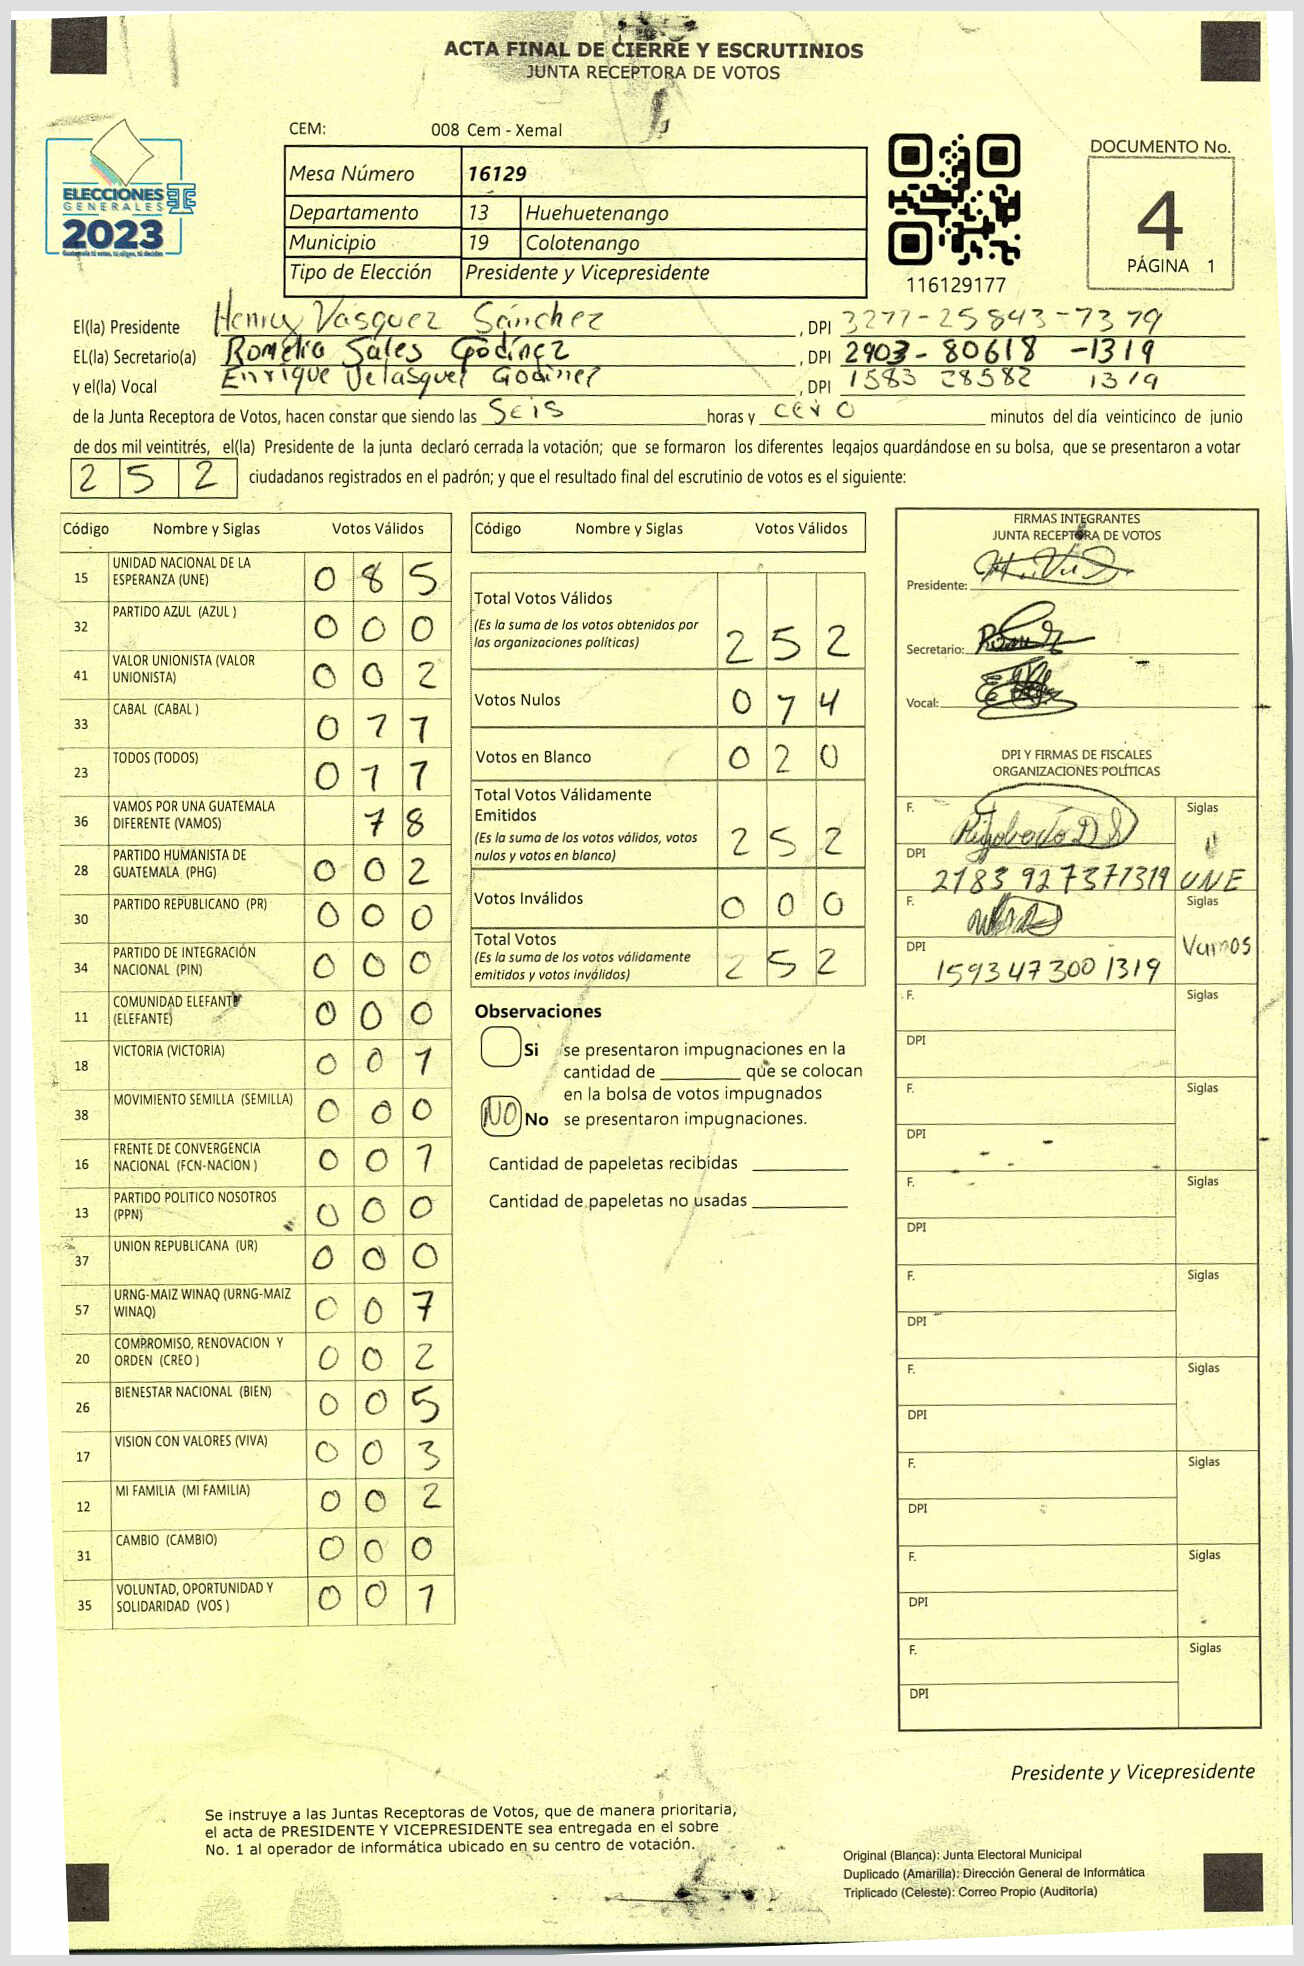 ACTA FINAL DE CIERRE Y ESCRUTINIOS
JUNTA RECEPTORA DE VOTOS
CEM: 008 Cem - Xemal
ELECCIONES
GENERALES
2023
Mesa Número 16129
Departamento 13 Huehuetenango
Municipio 19 Colotenango
Tipo de Elección Presidente y Vicepresidente
116129177
DOCUMENTO No.
4
PÁGINA 1
El(la) Presidente Henry Vásquez Sánchez, DPI 3277-25843-7379
EL(la) Secretario(a) Romelia Sales Godínez, DPI 2903-80618-1319
y el(la) Vocal Enrique Velasquez Godinez, DPI 1583 28582 1319
de la Junta Receptora de Votos, hacen constar que siendo las SEIS horas y CERO minutos del día veinticinco de junio
de dos mil veintitrés, el(la) Presidente de la junta declaró cerrada la votación; que se formaron los diferentes legajos guardándose en su bolsa, que se presentaron a votar
252 ciudadanos registrados en el padrón; y que el resultado final del escrutinio de votos es el siguiente:
Código Nombre y Siglas Votos Válidos
15 UNIDAD NACIONAL DE LA ESPERANZA (UNE) 085
32 PARTIDO AZUL (AZUL ) 000
41 VALOR UNIONISTA (VALOR UNIONISTA) 002
33 CABAL (CABAL ) 077
23 TODOS (TODOS) 077
36 VAMOS POR UNA GUATEMALA DIFERENTE (VAMOS) 78
28 PARTIDO HUMANISTA DE GUATEMALA (PHG) 002
30 PARTIDO REPUBLICANO (PR) 000
34 PARTIDO DE INTEGRACIÓN NACIONAL (PIN) 000
11 COMUNIDAD ELEFANTE (ELEFANTE) 000
18 VICTORIA (VICTORIA) 001
38 MOVIMIENTO SEMILLA (SEMILLA) 000
16 FRENTE DE CONVERGENCIA NACIONAL (FCN-NACION ) 001
13 PARTIDO POLITICO NOSOTROS (PPN) 000
37 UNION REPUBLICANA (UR) 000
57 URNG-MAIZ WINAQ (URNG-MAIZ WINAQ) 007
20 COMPROMISO, RENOVACION Y ORDEN (CREO ) 002
26 BIENESTAR NACIONAL (BIEN) 005
17 VISION CON VALORES (VIVA) 003
12 MI FAMILIA (MI FAMILIA) 002
31 CAMBIO (CAMBIO) 000
35 VOLUNTAD, OPORTUNIDAD Y SOLIDARIDAD (VOS ) 001
Código Nombre y Siglas Votos Válidos
Total Votos Válidos
(Es la suma de los votos obtenidos por
las organizaciones políticas) 252
Votos Nulos 074
Votos en Blanco 020
Total Votos Válidamente
Emitidos
(Es la suma de los votos válidos, votos
nulos y votos en blanco) 252
Votos Inválidos 000
Total Votos
(Es la suma de los votos válidamente
emitidos y votos inválidos) 252
Observaciones
Si se presentaron impugnaciones en la
cantidad de ________ que se colocan
en la bolsa de votos impugnados
NO No se presentaron impugnaciones.
Cantidad de papeletas recibidas
Cantidad de papeletas no usadas
FIRMAS INTEGRANTES
JUNTA RECEPTORA DE VOTOS
Presidente:
Secretario:
Vocal:
DPI Y FIRMAS DE FISCALES
ORGANIZACIONES POLÍTICAS
F. Rigoberto D S Siglas
DPI 2183 92737 1319 UNE
F. Siglas
DPI 1593 47300 1319 Vamos
F. Siglas
DPI
F. Siglas
DPI
F. Siglas
DPI
F. Siglas
DPI
F. Siglas
DPI
F. Siglas
DPI
F. Siglas
DPI
F. Siglas
DPI
Presidente y Vicepresidente
Se instruye a las Juntas Receptoras de Votos, que de manera prioritaria,
el acta de PRESIDENTE Y VICEPRESIDENTE sea entregada en el sobre
No. 1 al operador de informática ubicado en su centro de votación.
Original (Blanca): Junta Electoral Municipal
Duplicado (Amarilla): Dirección General de Informática
Triplicado (Celeste): Correo Propio (Auditoría)